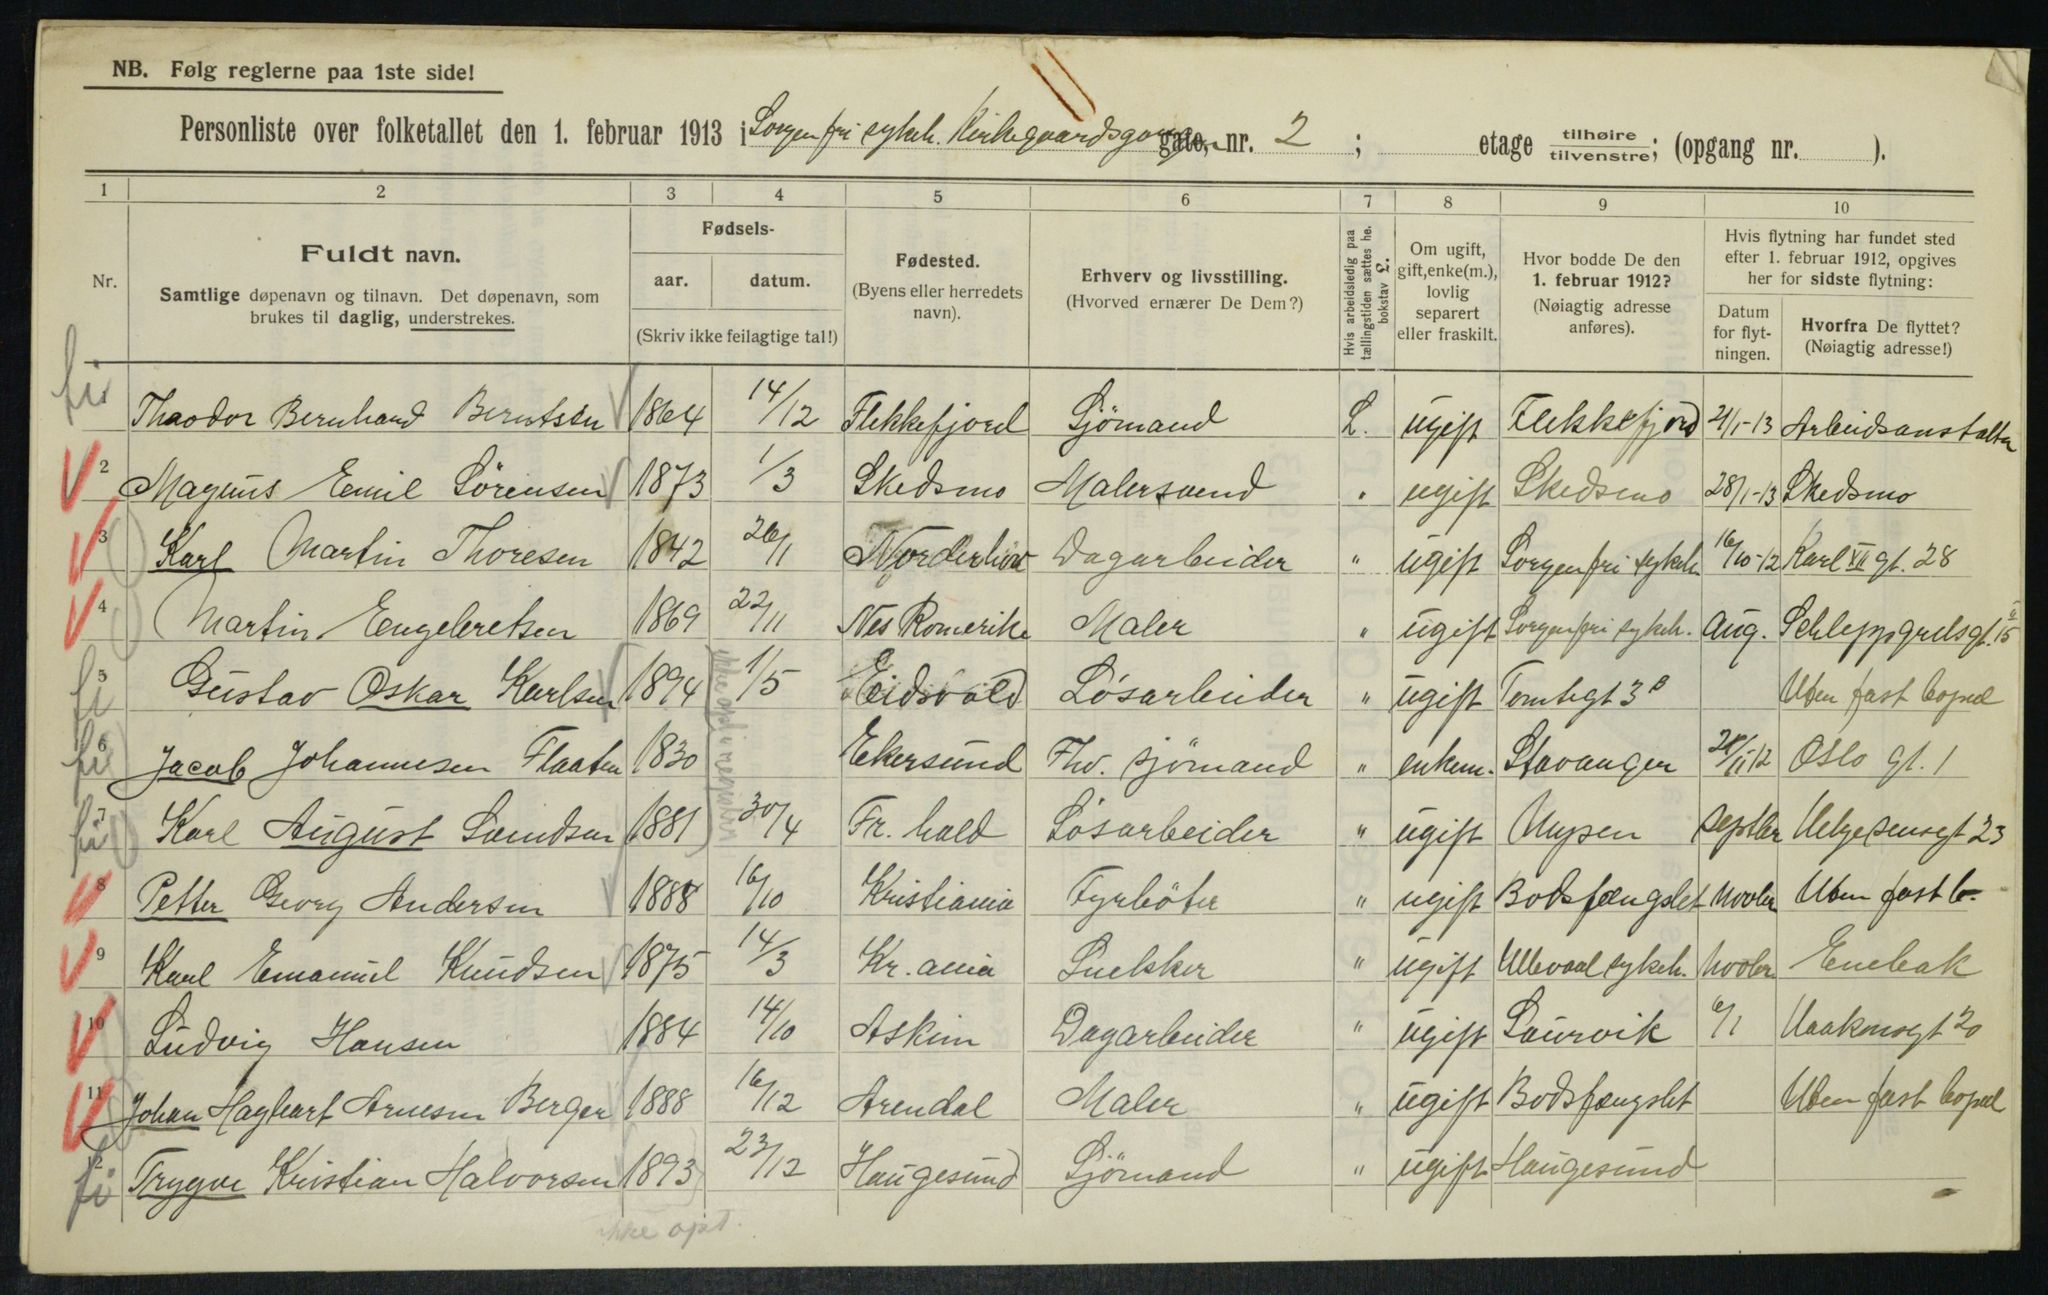 NB. Følg reglerne paa 1ste side!
Personliste over folketallet den 1. februar 1913 i Sorgenfri sykeh. Kirkegaardsgangen gate, nr. 2 ; etage tilhøire tilvenstre; (opgang nr. ).
1 2 3 4 5 6 7 8 9 10
Nr.
Fuldt navn.
Samtlige døpenavn og tilnavn. Det døpenavn, som
brukes til daglig, understrekes.
Fødsels-
aar. datum.
(Skriv ikke feilagtige tal!)
Fødested.
(Byens eller herredets
navn).
Erhverv og livsstilling.
(Hvorved ernærer De Dem?)
Hvis arbeidsledig paa
tællingstiden sættes he.
bokstav £.
Om ugift,
gift, enke(m.),
lovlig
separert
eller fraskilt.
Hvor bodde De den
1. februar 1912?
(Nøiagtig adresse
anføres).
Hvis flytning har fundet sted
efter 1. februar 1912, opgives
her for sidste flytning:
Datum
for flyt-
ningen.
Hvorfra De flyttet?
(Nøiagtig adresse!)
fi Theodor Bernhard Berntsen 1864 14/12 Flekkefjord Sjömand L. ugift Flekkefjord 21/1-13 Arbeidsanstalten
2 Magnus Emil Sörensen 1873 1/3 Skedsmo Malersvend " ugift Skedsmo 28/1-13 Skedsmo
3 Karl Martin Thoresen 1842 26/1 Norderhov Dagarbeider " ugift Sorgenfri sykeh. 16/10-12 Karl XII gt. 28
4 Martin Engebretsen 1869 22/11 Nes Romerike Maler " ugift Sorgenfri sykeh. Aug. Schleppgrelsgt. 15
fi 5 Gustav Oskar Karlsen 1894 1/5 Eidsvold Lösarbeider " ugift Tomtegt 3 B Uten fast bopæl
fi 6 Jacob Johannesen Flaaten 1830 Ekersund Fhv. sjömand " enkem. Stavanger 28/11-12 Oslo gt. 1
fi 7 Karl August Sandsen 1881 30/4 Fr. hald Lösarbeider " ugift Mysen septbr Helgesensgt 23
8 Petter Georg Andersen 1888 16/10 Kristiania Fyrböter " ugift Bodsfængslet Novbr Uten fast b.
9 Karl Emanuel Knudsen 1875 14/3 Kr.ania Snekker " ugift Ullevaal sykeh. Novbr Enebak
10 Ludvig Hansen 1884 14/10 Askim Dagarbeider " ugift Laurvik 6/1 Haakonsgt 20
11 Johan Hagbart Arnesen Berger 1888 16/12 Arendal Maler " ugift Bodsfængslet Uten fast bopæl
fi 12 Trygve Kristian Halvorsen 1893 23/12 Haugesund Sjömand " ugift Haugesund
ikke opt.